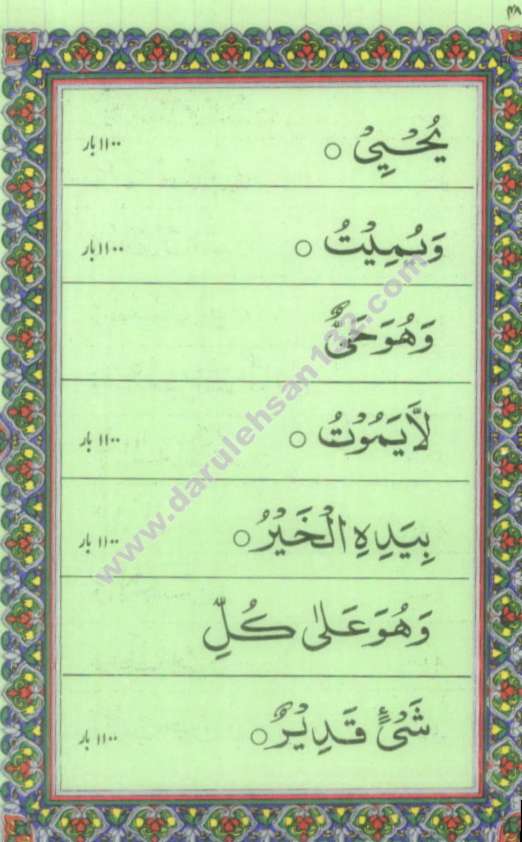 ۴۸
يُحْيِيْ ○ ۱۱۰۰ بار
وَيُمِيْتُ ○ ۱۱۰۰ بار
وَهُوَ حَيٌّ
لَّا يَمُوْتُ ○ ۱۱۰۰ بار
بِيَدِهِ الْخَيْرُ ○ ۱۱۰۰ بار
وَهُوَ عَلٰى كُلِّ
شَيْءٍ قَدِيْرٌ ○ ۱۱۰۰ بار
www.darulehsan132.com